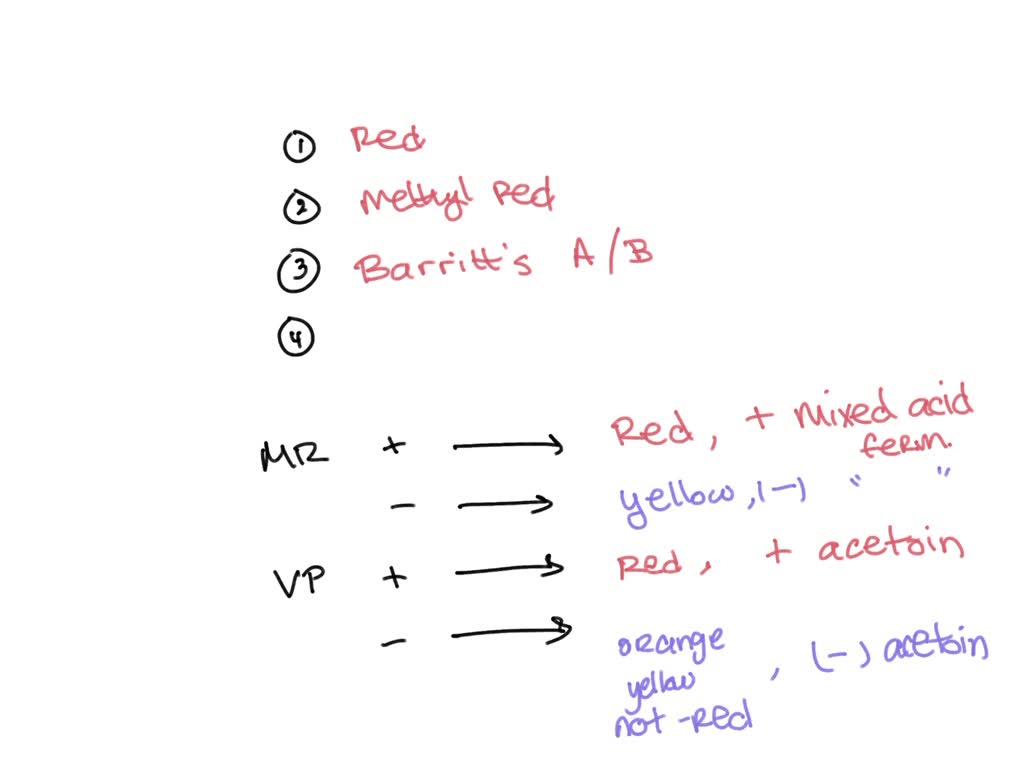 ① Red
② Methyl Red
③ Barritt's A/B
④
MR + → Red, + mixed acid
ferm.
- → yellow, (-) " "
VP + → Red, + acetoin
- → orange
yellow , (-) acetoin
not-Red